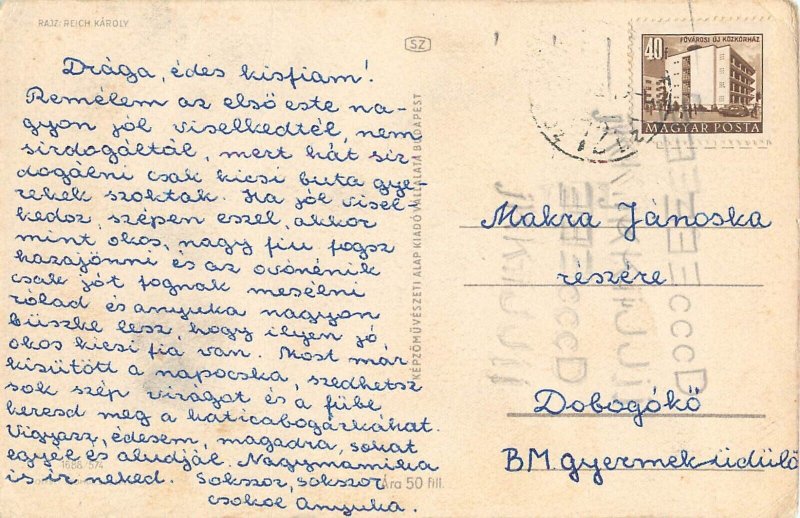 RAJZ: REICH KÁROLY
SZ
40f
FŐVÁROSI ÚJ KÖZKÓRHÁZ
MAGYAR POSTA
Drága, édes kisfiam!
Remélem az első este na-
gyon jól viselkedtél, nem
sirdogáltál, mert hát sir
dogálni csak kicsi buta gye-
rekek szoktak. Ha jól visel-
kedsz, szépen eszel, akkor
mint okos, nagy fiu fogsz
hazajönni és az ovónénik
csak jót fognak mesélni
rólad és anyuka nagyon
büszke lesz, hogy ilyen jó,
okos kicsi fia van. Most már
kisütött a napocska, szedhetsz
sok szép virágot és a fübe
keresd meg a katicabogárkákat.
Vigyázz, édesem, magadra, sokat
egyél és aludjál. Nagymamika
is ir neked. Sokszor, sokszor
csókol Anyuka.
1688/574
Ára 50 fill.
KÉPZŐMŰVÉSZETI ALAP KIADÓVÁLLALATA BUDAPEST
Makra Jánoska
részére
Dobogókő
BM. gyermeküdülő